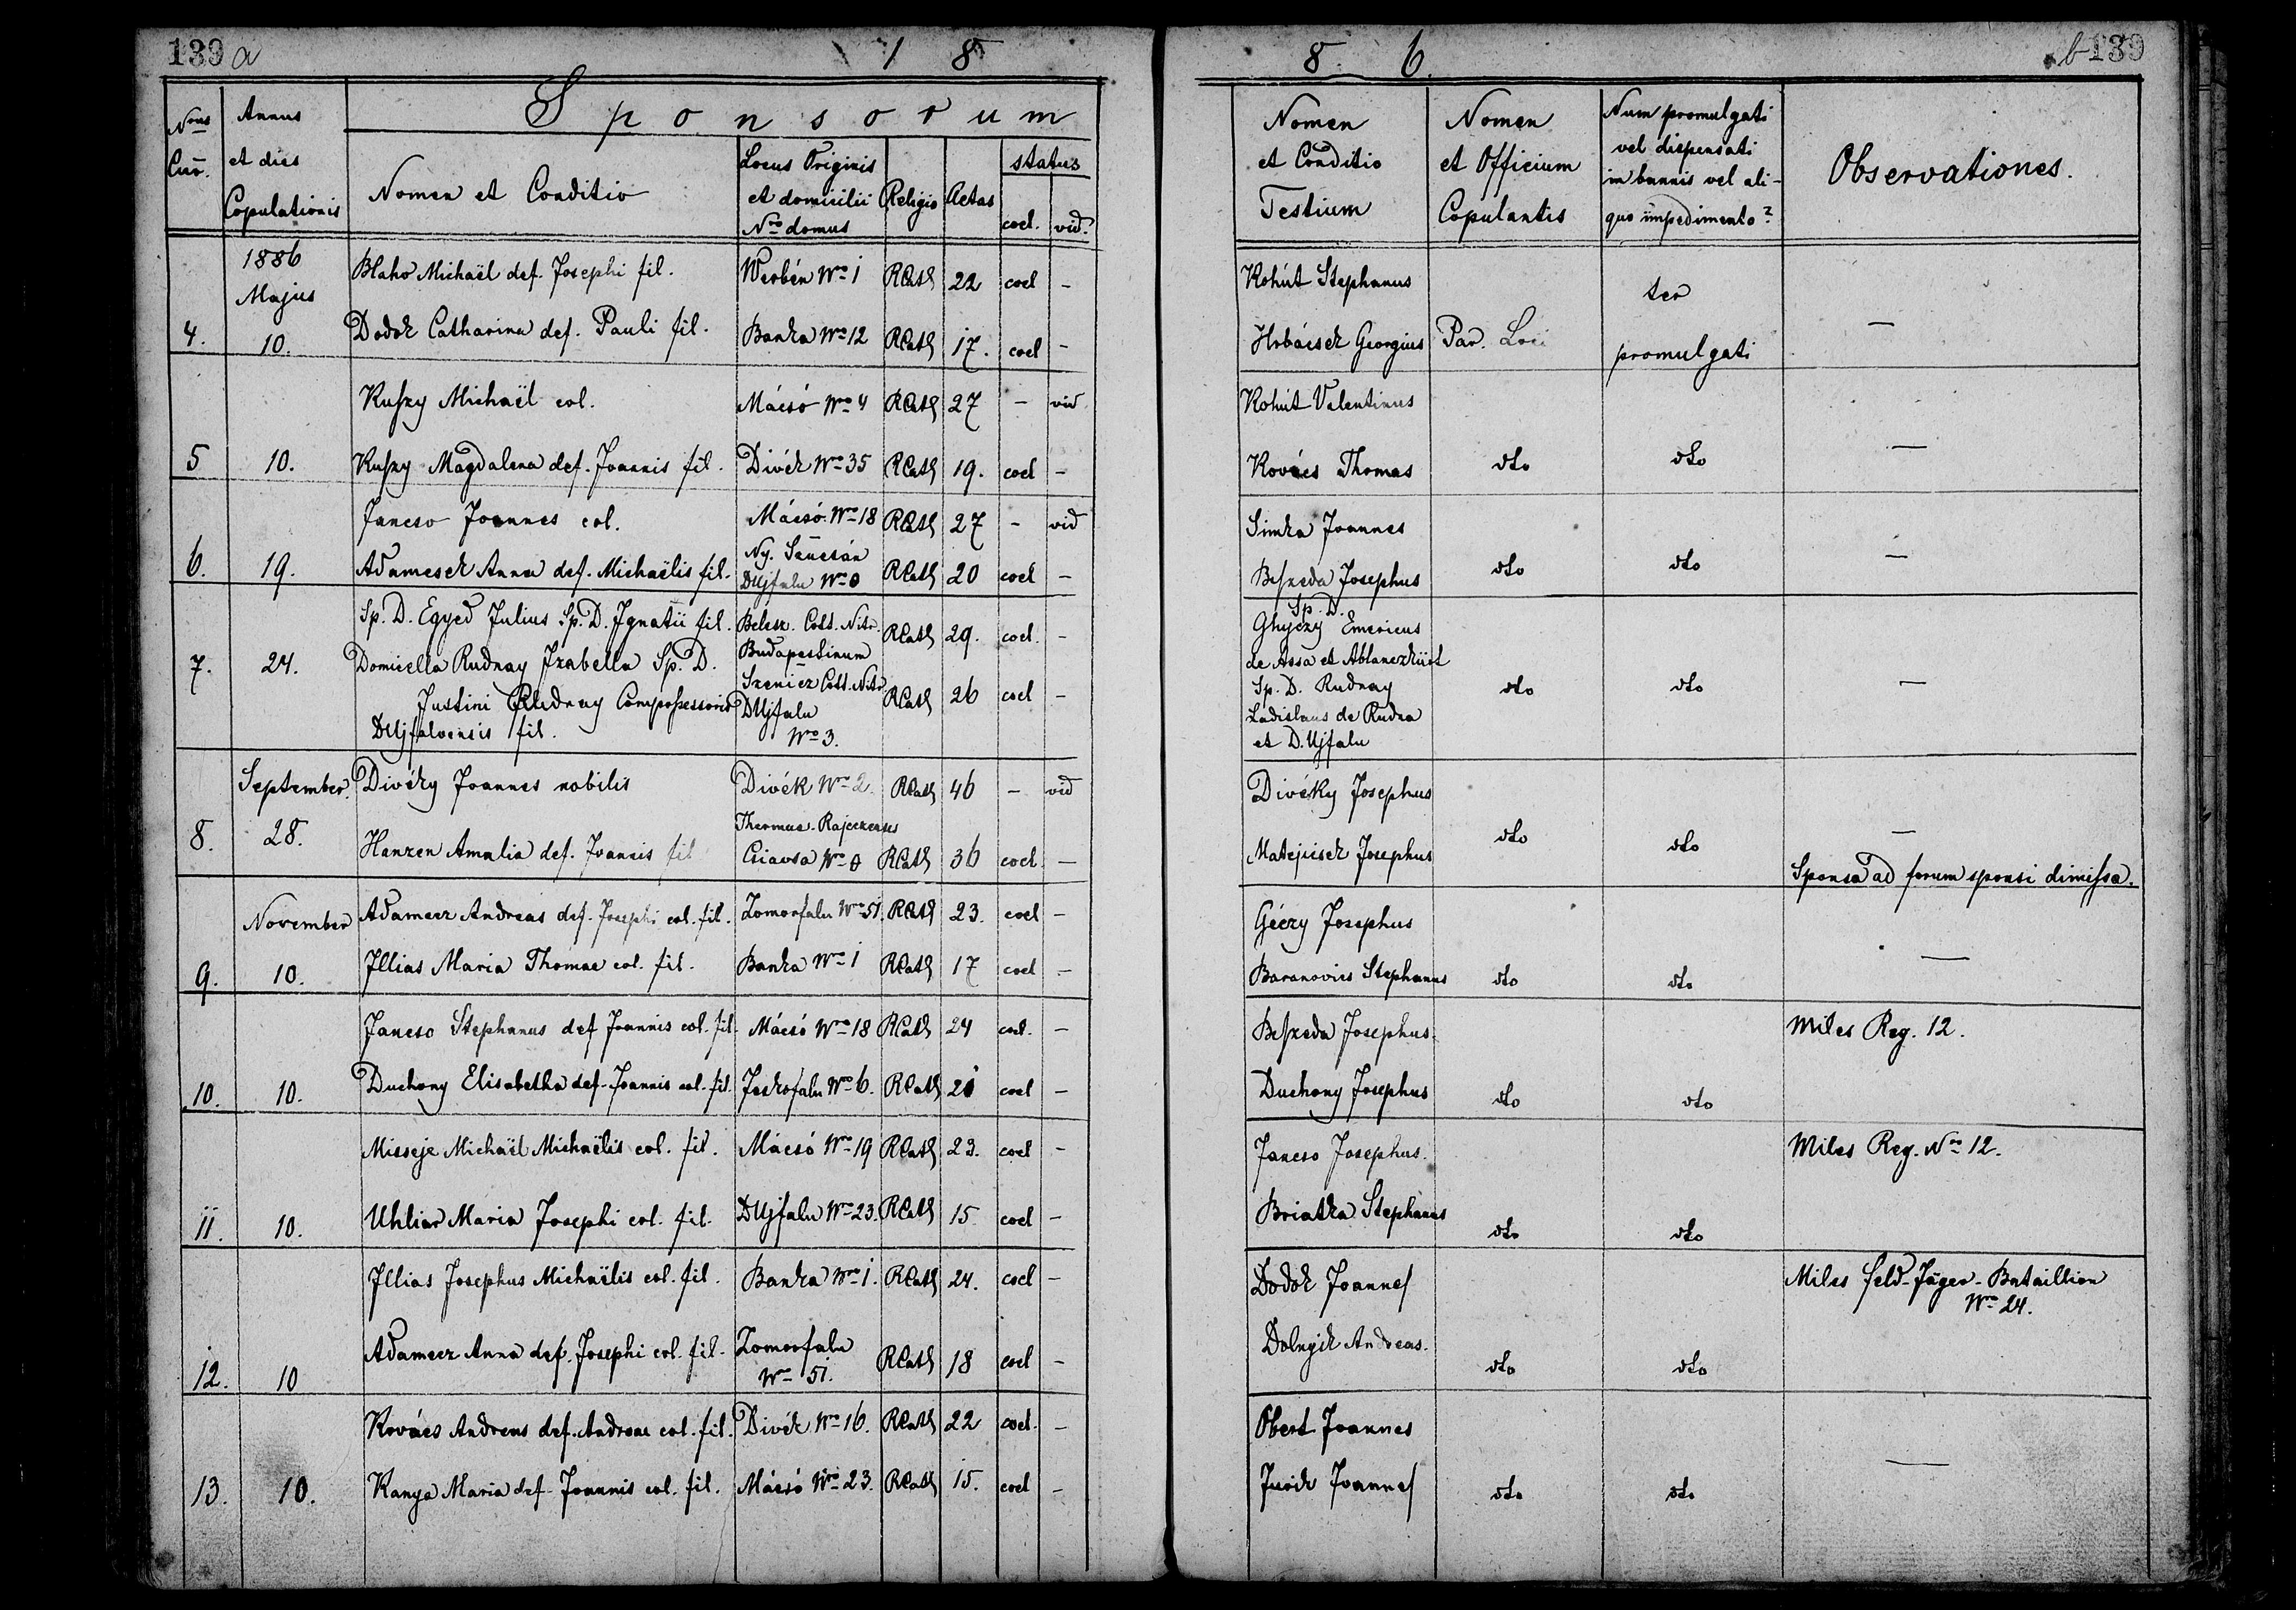 139 a
1 8
8 6.
b 139
Nrus Cur.
Annus et dies Copulationis
Sponsorum
Nomen et Conditio
Locus Originis et domicilii Nro domus
Religio
Aetas
status
coel. vid.
Nomen et Conditio Testium
Nomen et Officium Copulantis
Num promulgati vel dispensati in bannis vel aliquo impedimento?
Observationes.
1886 Majus
Blaho Michaël def. Josephi fil. Werbén Nro 1 RCath 22 coel – Kohút Stephanus ter
4. 10. Dodok Catharina def. Pauli fil. Banka Nro 12 RCath 17. coel – Hrbácsek Georgius Par. Loci promulgati —
Kuszy Michaël col. Mácsó Nro 4 RCath 27 – vid Kohút Valentinus
5 10. Kuszy Magdalena def. Joannis fil. Divék Nro 35 RCath 19. coel – Kovács Thomas dto dto —
Jancso Joannes col. Mácsó Nro 18 RCath 27 – vid Simka Joannes
6. 19. Adamcsek Anna def. Michaëlis fil. Ny. DUjfalu Nro 0 RCath 20 coel – Beszeda Josephus dto dto —
Sp. D. Egyed Julius Sp. D. Ignatii fil. Belesz. Cott. Nitr. Budapestinum RCath 29. coel. – Sp. D. Ghyczy Emericus
de Assa et Ablanczkürt
7. 24. Domicella Rudnay Izabella Sp. D. Szenicz Cott. Nitr. RCath 26 coel – Sp. D. Rudnay dto dto —
Justini Rudnay Compossessoris DUjfalu Ladislaus de Rudna
DUjfalvensis fil. Nro 3. et D. Ujfalu
September. Divéky Joannes nobilis Divék Nro 2. RCath 46 – vid Divéky Josephus
Thermae Rajeczenses
8. 28. Hanzen Amalia def. Joannis fil Csiavsa Nro 0 RCath 36 coel. — Matejicsek Josephus dto dto —
Sponsa ad forum sponsi dimissa.
November Adamecz Andreas def. Josephi col. fil. Zomorfalu Nro 51. RCath 23. coel – Géczy Josephus
9. 10. Illias Maria Thomae col. fil. Banka Nro 1 RCath 17 coel – Baranovics Stephanus dto dto —
Jancso Stephanus def Joannis col. fil. Mácsó Nro 18 RCath 24 coel. – Beszeda Josephus. Miles Reg. 12.
10. 10. Duchony Elisabetha def. Joannis col. fil. Jeskofalu Nro 6. RCath 21 coel – Duchony Josephus dto dto
Misseje Michaël Michaëlis col. fil. Mácsó Nro 19 RCath 23. coel – Jancso Josephus. Miles Reg. Nro 12.
11. 10. Uhliar Maria Josephi col. fil. DUjfalu Nro 23. RCath 15 coel – Briatka Stephanus dto dto
Illias Josephus Michaëlis col. fil. Banka Nro 1. RCath 24. coel – Dodok Joannes Miles Feld-Jäger-Bataillion
Nro 24.
12. 10 Adamecz Anna def. Josephi col. fil. Zomorfalu Nro 51. RCath 18 coel – Dolnyik Andreas. dto dto
Kovács Andreas def. Andreae col. fil. Divék Nro 16. RCath 22 coel. – Obert Joannes
13. 10. Kanya Maria def. Joannis col. fil. Mácsó Nro 23. RCath 15. coel – Jurik Joannes dto dto —